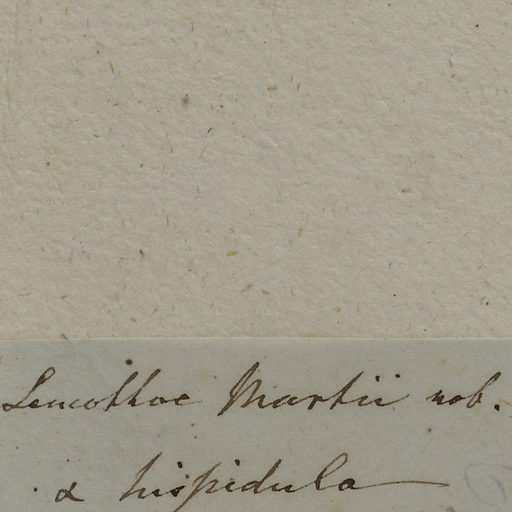 Leucothoe Martii nob.
α hispidula